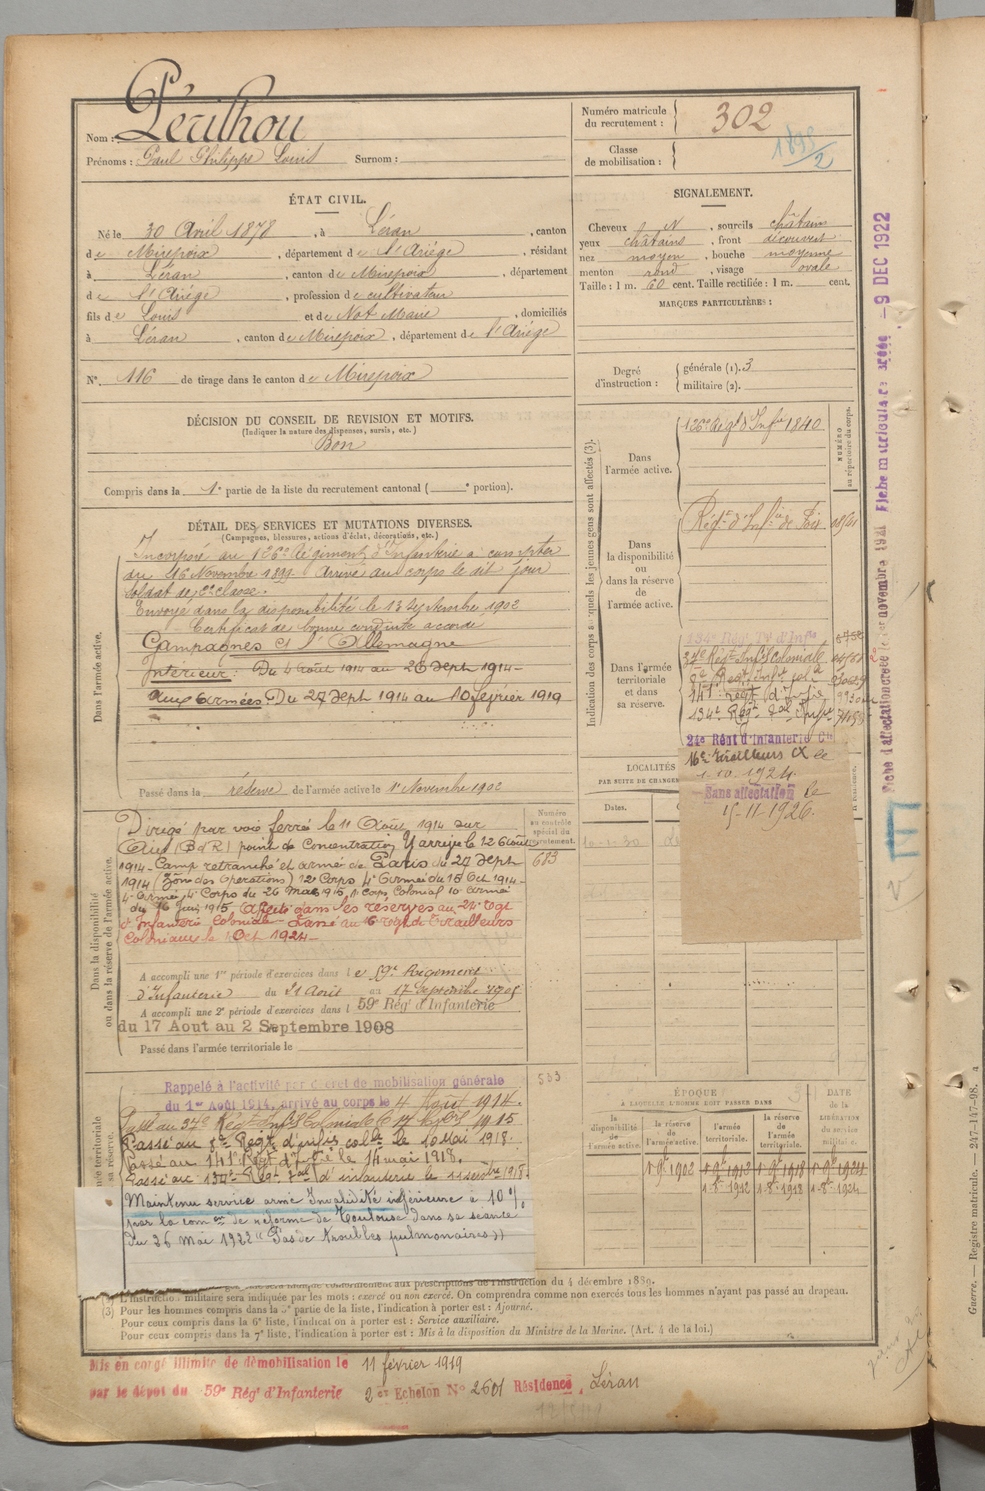 Nom : Périlhou
Prénoms : Paul Philippe Louis Surnom :
Numéro matricule du recrutement : 302
Classe de mobilisation : 1895/2
ÉTAT CIVIL.
Né le 30 Avril 1878, à Léran, canton
de Mirepoix, département de l'Ariége, résidant
à Léran, canton de Mirepoix, département
de l'Ariége, profession de cultivateur
fils de Louis et de Not Marie, domiciliés
à Léran, canton de Mirepoix, département de l'Ariége
N°. 116 de tirage dans le canton de Mirepoix
SIGNALEMENT.
Cheveux N, sourcils châtain
yeux châtains, front découvert
nez moyen, bouche moyenne
menton rond, visage ovale
Taille : 1 m. 60 cent. Taille rectifiée : 1 m. cent.
MARQUES PARTICULIÈRES :
Degré d'instruction : générale (1). 3
militaire (2).
DÉCISION DU CONSEIL DE REVISION ET MOTIFS.
(Indiquer la nature des dispenses, sursis, etc.)
Bon
Compris dans la 1e partie de la liste du recrutement cantonal ( e portion).
DÉTAIL DES SERVICES ET MUTATIONS DIVERSES.
(Campagnes, blessures, actions d'éclat, décorations, etc.)
Dans l'armée active.
Incorporé au 126e Régiment d'Infanterie à compter
du 16 Novembre 1899. Arrivé au corps le dit jour
soldat de 2e classe.
Envoyé dans la disponibilité le 13 Septembre 1902
Certificat de bonne conduite accordé
Campagnes c/ l'Allemagne
Intérieur : Du 4 Août 1914 au 26 Sept 1914-
Aux Armées Du 27 Sept 1914 au 10 février 1919
Passé dans la réserve de l'armée active le 1er Novembre 1902
Dans la disponibilité ou dans la réserve de l'armée active.
Numéro au contrôle spécial du recrutement.
683
Dirigé par voie ferrée le 11 Août 1914 sur
Aix (B d R) point de Concentration Y arrive le 12 Août
1914- Camp retranché et armée de Paris du 27 Sept
1914 (Zône des Operations) 12e Corps 4e Armée du 15 Oct 1914-
4e Armée, 4e Corps du 26 Mai 1915, 1er Corps Colonial 10e Armée
du 16 Juin 1915 Affecté dans les réserves au 24e Régt
d'Infanterie Coloniale- Passé au 16e Régt de Tirailleurs
Coloniaux le 1 Oct 1924-
A accompli une 1re période d'exercices dans le 59e Régiment
d'Infanterie du 21 Août au 17 Septembre 1905
A accompli une 2e période d'exercices dans le 59e Régt d'Infanterie
du 17 Aout au 2 Septembre 1908
Passé dans l'armée territoriale le
Rappelé à l'activité par décret de mobilisation générale
du 1er Août 1914, arrivé au corps le 4 Aout 1914.
533
Passé au 8e Régt d'infie colle le 10 Mai 1918.
Passé au 141e Régt d'Infie le 14 mai 1918.
Passé au 134e Régt Tal d'infanterie le 11 septbre 1918.
Maintenu service armé Invalidité inférieure à 10 %
par la com on de réforme de Toulouse dans sa séance
du 26 Mai 1922 "Pas de troubles pulmonaires"
Indication des corps auxquels les jeunes gens sont affectés (3).
NUMÉRO au répertoire du corps.
Dans l'armée active.
126e Régt d'Infie 1840
Dans la disponibilité ou dans la réserve de l'armée active.
Régt d'Infie de Foix
Dans l'armée territoriale et dans sa réserve.
134e Régt Tal d'Infie
24e Régt Infie Coloniale
8e Regt Infie colle
141e regt d'Infie
134e Régt Tal Infie
24e Régt d'Infanterie Cle
16e Tirailleurs CX le
1.10.1924.
Sans affectation le
15-11-1926.
LOCALITÉS
PAR SUITE DE CHANGEM
Dates.
ÉPOQUE
À LAQUELLE L'HOMME DOIT PASSER DANS
la disponibilité de l'armée active.
la réserve de l'armée active.
l'armée territoriale.
la réserve de l'armée territoriale.
DATE de la LIBÉRATION du service militaire.
1-9bre 1902 1-9bre 1912 1-9bre 1918 1-9bre 1924
1-8-1912 1-8-1918 1-8-1924
conformément aux prescriptions de l'instruction du 4 décembre 1889.
L'instruction militaire sera indiquée par les mots : exercé ou non exercé. On comprendra comme non exercés tous les hommes n'ayant pas passé au drapeau.
(3) Pour les hommes compris dans la 5e partie de la liste, l'indication à porter est : Ajourné.
Pour ceux compris dans la 6e liste, l'indication à porter est : Service auxiliaire.
Pour ceux compris dans la 7e liste, l'indication à porter est : Mis à la disposition du Ministre de la Marine. (Art. 4 de la loi.)
Mis en congé illimité de démobilisation le 11 février 1919
par le dépôt du 59e Régt d'Infanterie 2e Echelon N° 2601 Résidence, Léran
Fiche d'affectation créée le 1er novembre 1921 Fiche matricule créée -9 DEC 1922
Guerre. — Registre matricule. — 247-147-98.